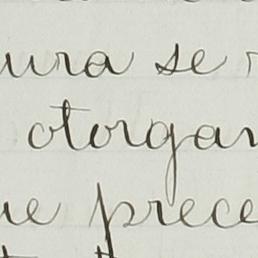 ura se
otorgan
ue prece